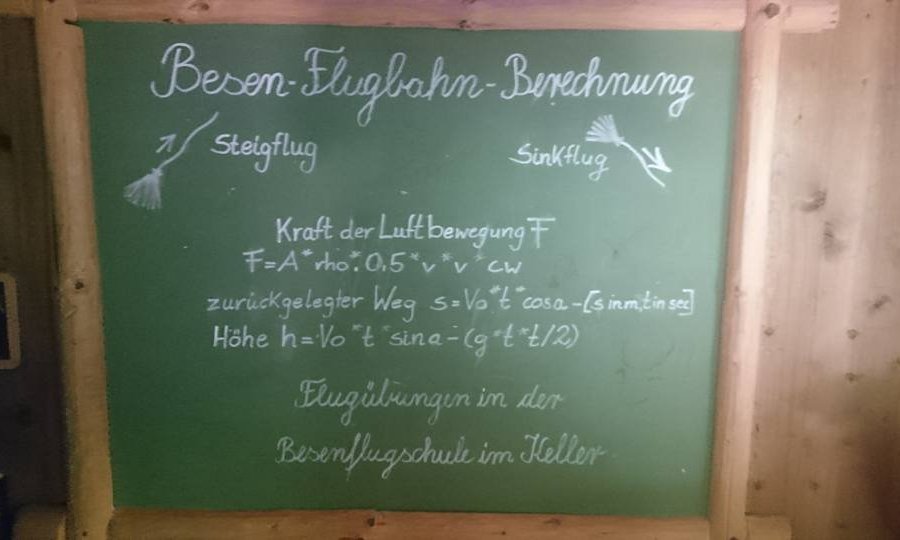 Besen-Flugbahn-Berechnung
Steigflug
Sinkflug
Kraft der Luftbewegung F
F=A*rho*0,5*v*v*cw
zurückgelegter Weg s=Vo*t*cosa-[s in m, t in sec]
Höhe h=Vo*t*sina-(g*t*t/2)
Flugübungen in der
Besenflugschule im Keller